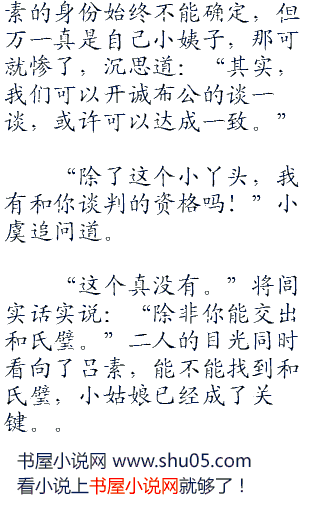 素的身份始终不能确定，但
万一真是自己小姨子，那可
就惨了，沉思道：“其实，
我们可以开诚布公的谈一
谈，或许可以达成一致。”
“除了这个小丫头，我
有和你谈判的资格吗！”小
虞追问道。
“这个真没有。”将闾
实话实说：“除非你能交出
和氏璧。”二人的目光同时
看向了吕素，能不能找到和
氏璧，小姑娘已经成了关
键。。
书屋小说网 www.shu05.com
看小说上书屋小说网就够了！